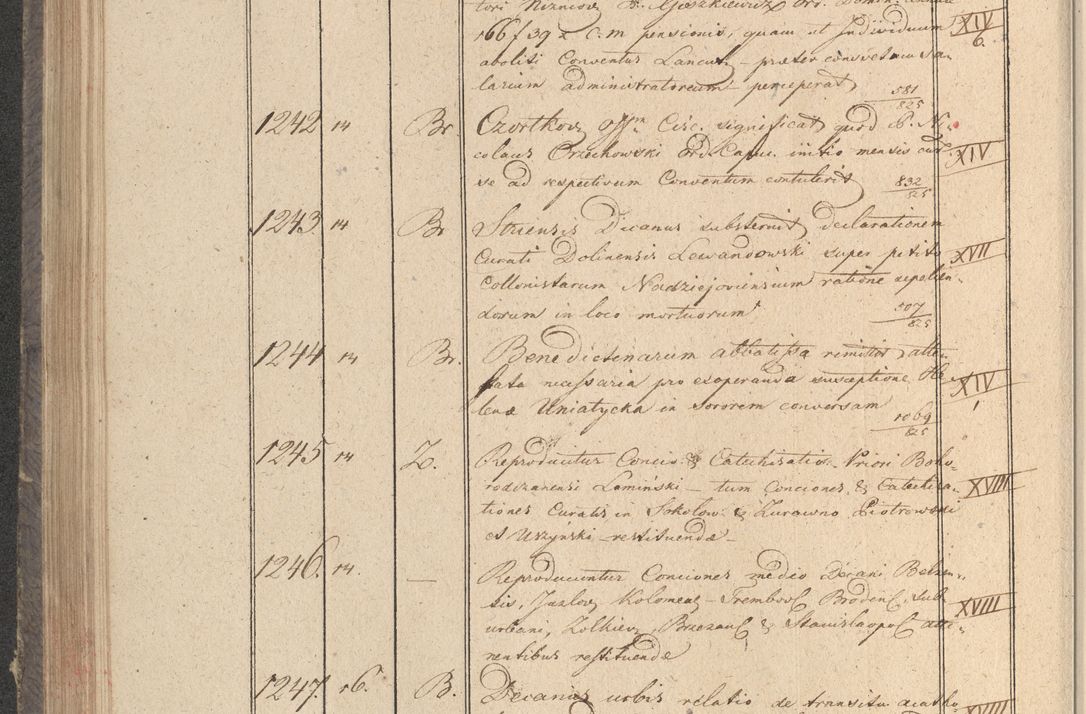 tori Nizniov P. Goszkiewicz Ord. Domin. annue
166 f 39 x C. m pensionis, quam et Individuum XIV
6.
aboliti Conventus Lancut. – præter consvetum sa-
larium administratorium – perceperat 581/825
1242 14 Br. Czortkov offm Circ. significat, quod P. Ni-
colaus Orzechowski Ord. Capuc. initio mensis XIV
se ad respectivum Conventum contulerit 832/825
1243 14 Br Striensis Decanus substernit declarationem
Curati Dolinensis Lewandowski super petito XVII
Collonistarum Nadziejoviensium ratione sepelien-
dorum in loco mortuorum 507/825
1244 14 Br. Benedictenarum abbatissa remistit atte-
stata necessaria pro exoperanda susceptione He- XIV
lenæ Uniatycka in sororem conversam 1
1069/825
1245 14 Z. Reproducuntur Concio & Catechisatio Priori Boho-
rodczanensi Laminski – tum Conciones & Catechisa- XVIII
tiones Curatis in Sokolow & Zurawno Piotrowski
et Uszyński restituendæ –
1246. 14. — Reproducuntur Conciones medio Decani Belzen-
sis, Jazlov Kolomens – Trembovl Brodens, sub- XVIII
urbani, Zolkiev, Brzezan & Stanislaopol atti-
nentibus restituendæ
1247. 16. B. Decanus urbis relatio de transitu XVIII